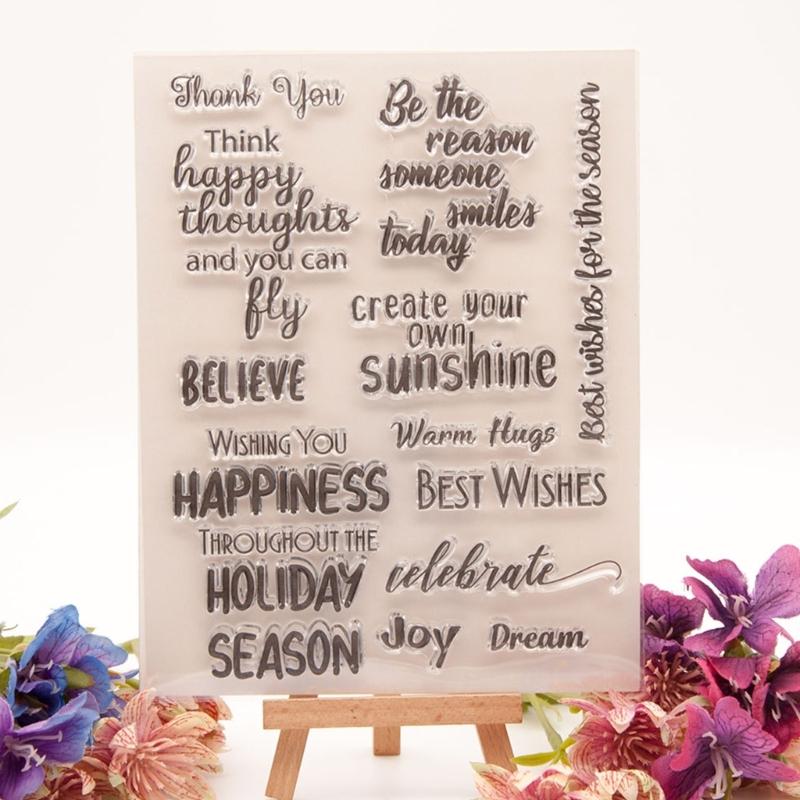 Thank You
Think
happy
thoughts
and you can
fly
BELIEVE
WISHING YOU
HAPPINESS
THROUGHOUT THE
HOLIDAY
SEASON
Be the
reason
someone
smiles
today
create your
own
sunshine
Warm Hugs
BEST WISHES
celebrate
Joy
Dream
Best wishes for the season